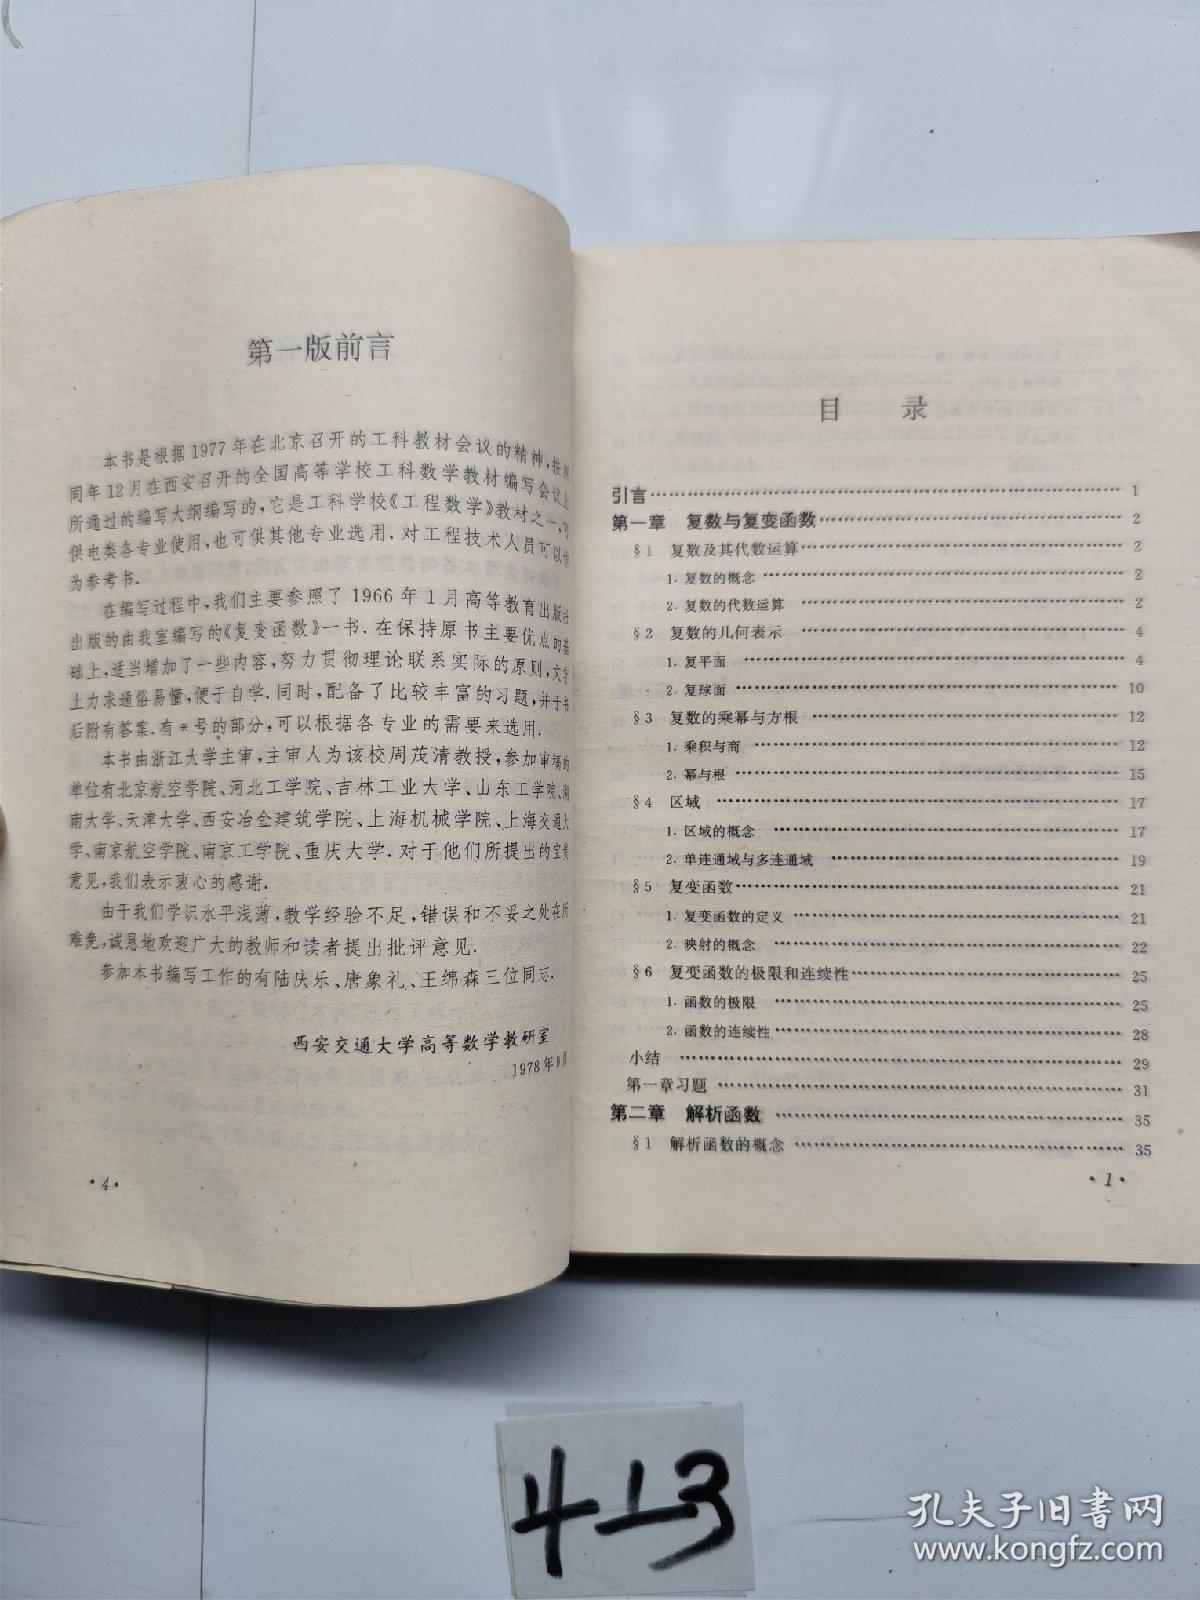 第一版前言
本书是根据1977年在北京召开的工科教材会议的精神,按照
同年12月在西安召开的全国高等学校工科数学教材编写会议上
所通过的编写大纲编写的,它是工科学校《工程数学》教材之一,可
供电类各专业使用,也可供其他专业选用.对工程技术人员可以作
为参考书.
在编写过程中,我们主要参照了1966年1月高等教育出版社
出版的由我室编写的《复变函数》一书.在保持原书主要优点的基
础上,适当增加了一些内容,努力贯彻理论联系实际的原则,文字
上力求通俗易懂,便于自学.同时,配备了比较丰富的习题,并于书
后附有答案.有*号的部分,可以根据各专业的需要来选用.
本书由浙江大学主审,主审人为该校周茂清教授,参加审稿的
单位有北京航空学院、河北工学院、吉林工业大学、山东工学院、湖
南大学、天津大学、西安冶金建筑学院、上海机械学院、上海交通大
学、南京航空学院、南京工学院、重庆大学.对于他们所提出的宝贵
意见,我们表示衷心的感谢.
由于我们学识水平浅薄,教学经验不足,错误和不妥之处在所
难免,诚恳地欢迎广大的教师和读者提出批评意见.
参加本书编写工作的有陆庆乐、唐象礼、王绵森三位同志.
西安交通大学高等数学教研室
1978年9月
·4·
目 录
引言 1
第一章 复数与复变函数 2
§1 复数及其代数运算 2
1. 复数的概念 2
2. 复数的代数运算 2
§2 复数的几何表示 4
1. 复平面 4
2. 复球面 10
§3 复数的乘幂与方根 12
1. 乘积与商 12
2. 幂与根 15
§4 区域 17
1. 区域的概念 17
2. 单连通域与多连通域 19
§5 复变函数 21
1. 复变函数的定义 21
2. 映射的概念 22
§6 复变函数的极限和连续性 25
1. 函数的极限 25
2. 函数的连续性 28
小结 29
第一章习题 31
第二章 解析函数 35
§1 解析函数的概念 35
·1·
4-13
孔夫子旧书网
www.kongfz.com